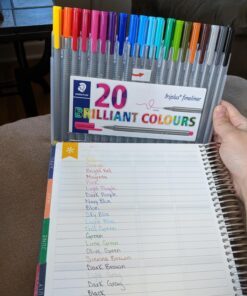 STAEDTLER
triplus fineliner
20
BRILLIANT COLOURS
Bright Red
Magenta
Pink
Light Purple
Dark Purple
Navy Blue
Blue
Sky Blue
Light Blue
Green
Lime Green
Olive Green
Sienna Brown
Dark Brown
Dark Gray
Black